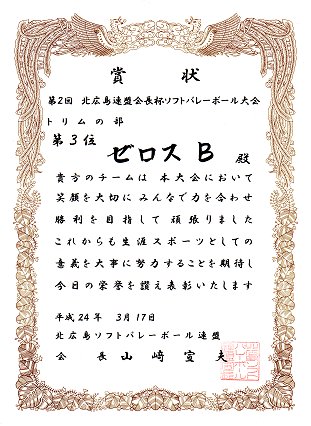 賞状
第2回 北広島連盟会長杯ソフトバレーボール大会
トリムの部
第3位
ゼロスB 殿
貴方のチームは 本大会において
笑顔を大切に みんなで力を合わせ
勝利を目指して 頑張りました
これからも生涯スポーツとしての
意義を大事に努力することを期待し
今日の栄誉を讃え表彰いたします
平成24年 3月17日
北広島ソフトバレーボール連盟
会長 山﨑宣夫